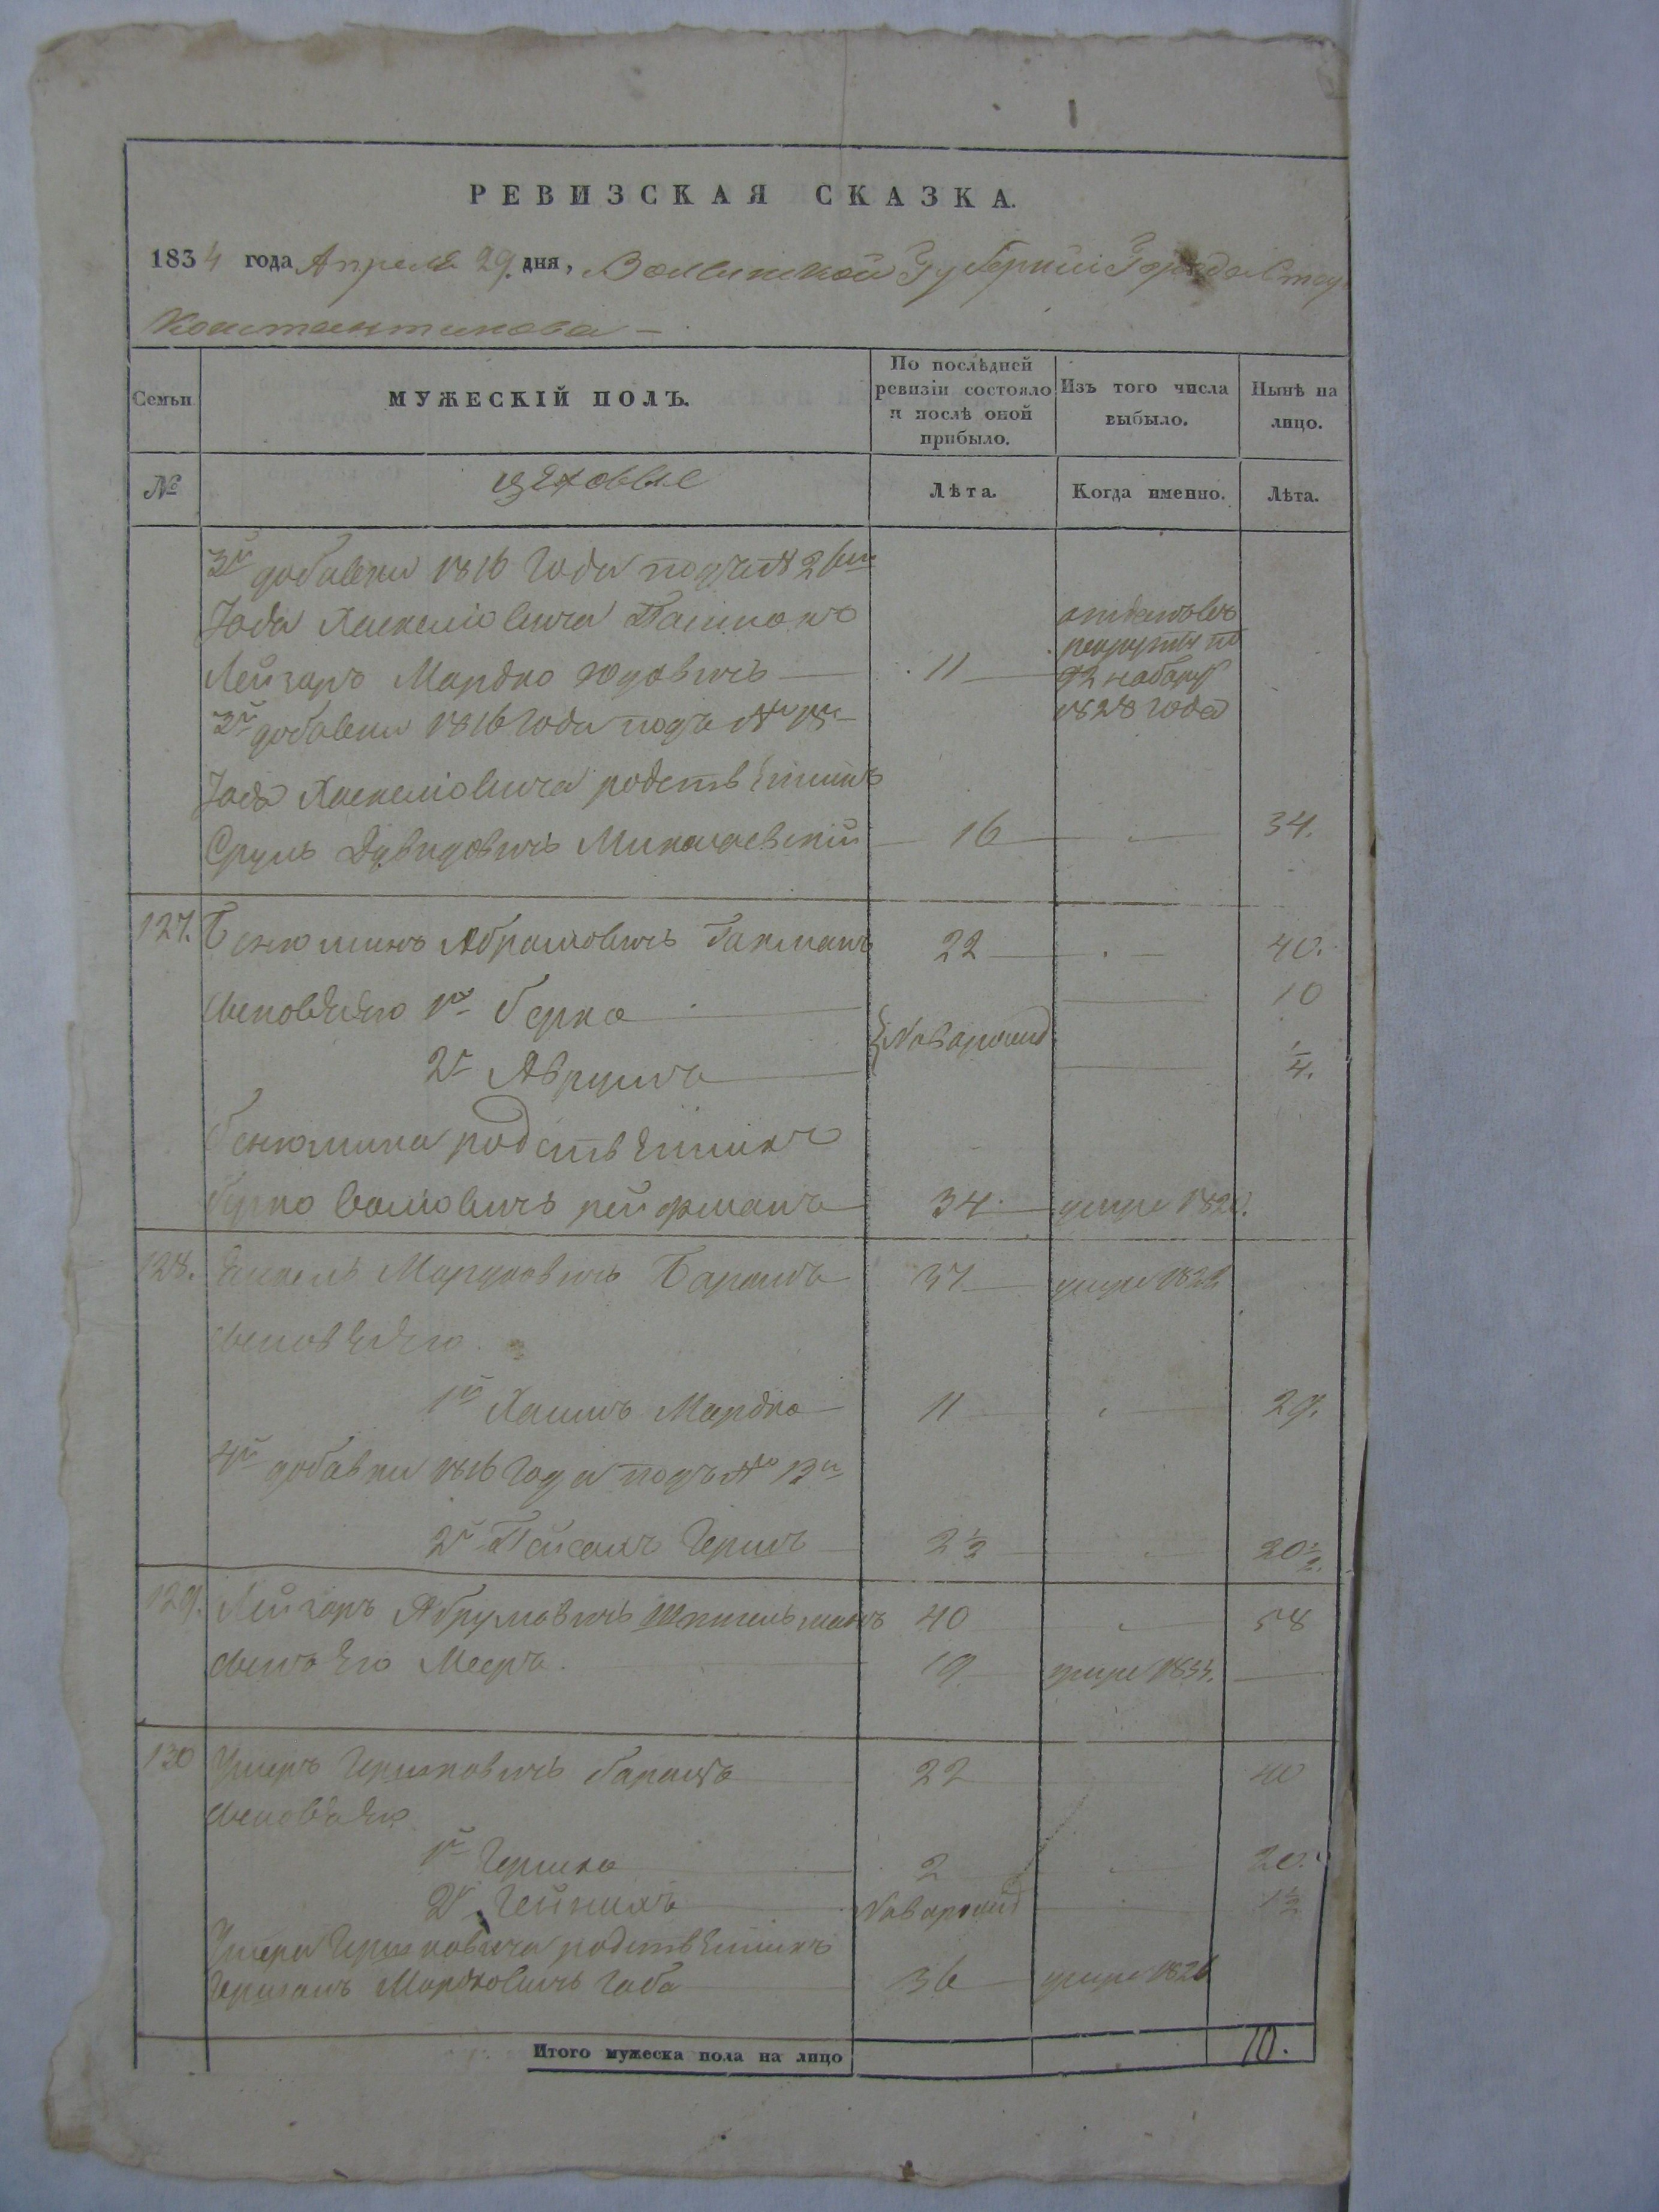 РЕВИЗСКАЯ СКАЗКА.
1834 года Апреля 29 дня, Волынской Губерніи Города Старо
Константинова —
Семьи МУЖЕСКІЙ ПОЛЪ. По послѣдней ревизіи состояло и послѣ оной прибыло. Изъ того числа выбыло. Нынѣ на лицо.
№ цеховые Лѣта. Когда именно. Лѣта.
3й добавки 1816 Года подъ № 2
Іося Хаскеліовича
Лейзаръ Мардко Юдовичъ — 11 — отданъ въ рекруты по 92 набору 1828 года
3й добавки 1816 Года подъ №
Хаскеліовича родственникъ
Сруль Давидовичъ Миколаевскій — 16 — 34.
127. Бенюминъ Абрамовичъ Гакманъ 22 — 40.
сыновья Его 1й Берко — Новорожд 10
2й Аврумъ — 1/4.
Бенюмина родственникъ
Берко Рейфманъ 34 — умре 1820.
128. Янкель Мардковичъ Баранъ 37 — умре
сыновья Его
1й Хаимъ Мардко 11 — 29.
4й добавки 1816 Года подъ № 13
2й Пейсахъ Гершъ 2 1/2 — 20 1/2.
129. Лейзаръ Абрумовичъ Шпигельманъ 40 — 58
сынъ Его Мееръ. 19 — умре 1833.
130 Ушеръ Гершковичъ Баранъ 22 40
сыновья Его
1й Гершко 2 — 20.
2й Новорожд — 1 1/2
Ушера Гершковича родственникъ
Мардковичъ 36 — умре 1826
Итого мужеска пола на лицо 10.